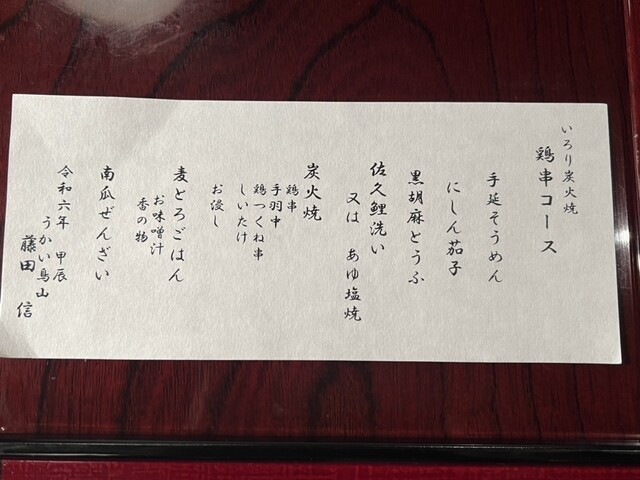 いろり炭火焼
鶏串コース
手延そうめん
にしん茄子
黒胡麻とうふ
佐久鯉洗い
又は あゆ塩焼
炭火焼
鶏串
手羽中
鶏つくね串
しいたけ
お浸し
麦とろごはん
お味噌汁
香の物
南瓜ぜんざい
令和六年 甲辰
うかい鳥山
藤田 信